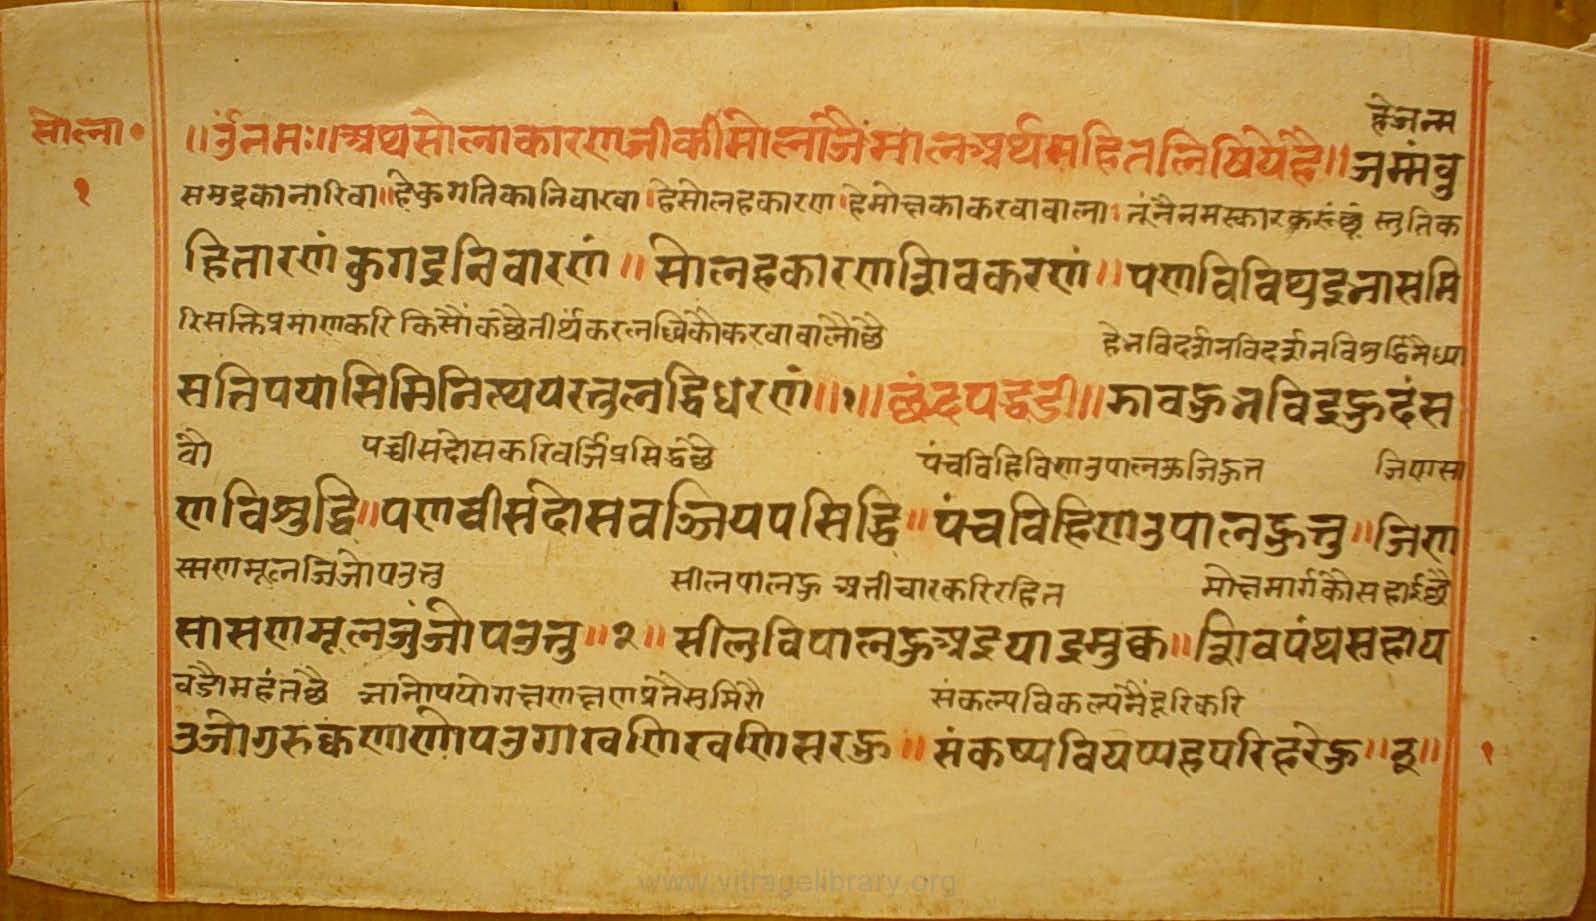 हेजन्म
सोला॰ ॥र्नुनमः॥अथसोलाकारणजीकीसोलाजैमालअर्थसहितलिषियेहै॥जम्मंवु
१
समुद्रकानारिवा॥हेकुगतिकानिवारवा।हेसोलहकारण।हेमोक्षकाकरवावाला।तूनैनमस्कारकरूंछूं स्तुतिक
हितारणं कुगइनिवारणं॥सोलहकारणशिवकरणं॥पणविविथुइनासमि
रिसक्तिप्रमाणकरि किसौंकछैतीर्थंकरलब्धिकोंकरवावालौछै हेनविदर्शनविदर्शनविशुद्धिनैध्या
सत्तिपयासिमिनित्थयरत्तुलद्धिधरणं॥१॥छंदपद्धडी॥भावहुनविदहुदंस
वौ पच्चीसदोसकरिवर्जिप्रसिद्धछै पंचविहिविणउपालऊजिहुत्त जिणसा
णविशुद्धि॥पणवीसदोसवज्जियपसिद्धि॥पंचविहिणउपालहुत्तु॥जिण
सणमूलजिजोपउत्तु सीलपालहु अतीचारकरिरहित मोक्षमार्गकौसहाईछै
सासणमूलजुंजोपउत्तु॥२॥सीलुविपालहुअइयाइमुक्क॥शिवपंथसहाय
वडौमहंतछै ज्ञानोपयोगक्षणक्षणप्रतैसुमिरौ संकल्पविकल्पनैंदूरिकरि
उजोगुरुक्कणाणोपउगाखणिखणिसरहु॥संकप्पवियप्पहपरिहरेहु॥ठ॥ १
www.vitragelibrary.org